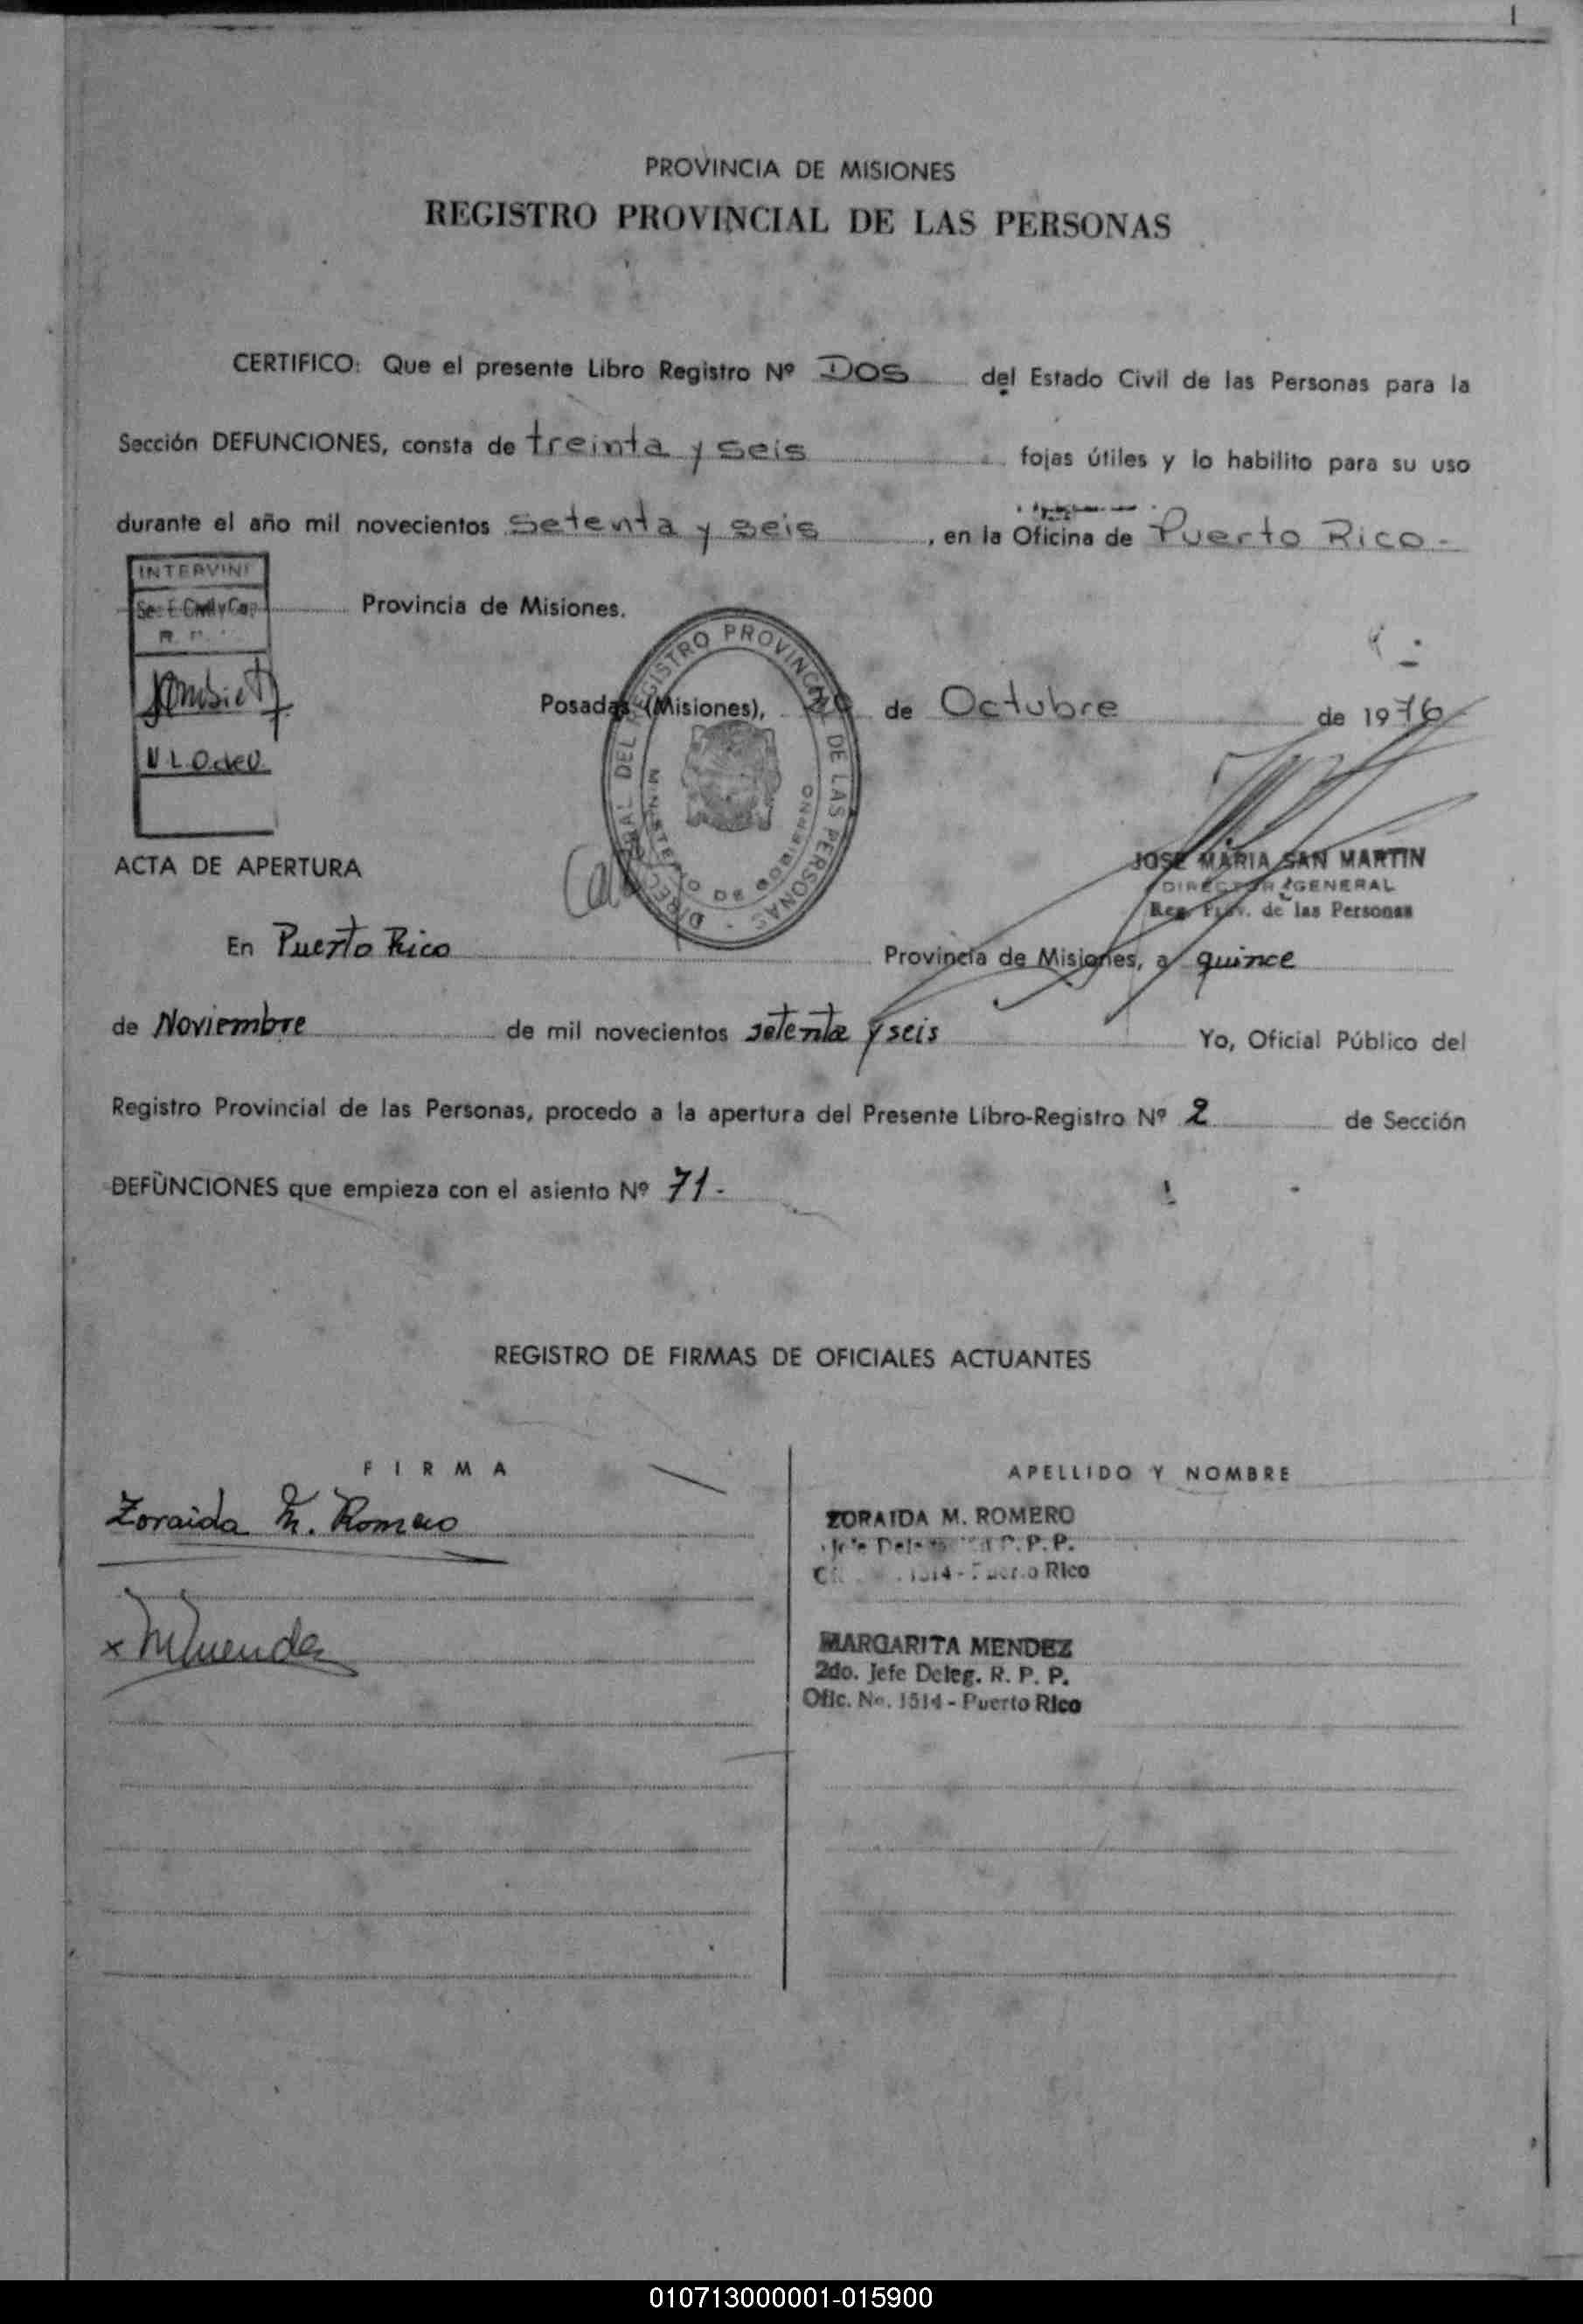 1
PROVINCIA DE MISIONES
REGISTRO PROVINCIAL DE LAS PERSONAS
CERTIFICO: Que el presente Libro Registro Nº Dos del Estado Civil de las Personas para la
Sección DEFUNCIONES, consta de treinta y seis fojas útiles y lo habilito para su uso
durante el año mil novecientos setenta y seis, en la Oficina de Puerto Rico.-
INTERVINE
Provincia de Misiones.
Posadas (Misiones), de Octubre de 1976
DIRECCION GENERAL DEL REGISTRO PROVINCIAL DE LAS PERSONAS -
MINISTERIO DE GOBIERNO
JOSE MARIA SAN MARTIN
DIRECTOR GENERAL
Reg. Prov. de las Personas
ACTA DE APERTURA
En Puerto Rico Provincia de Misiones, a quince
de Noviembre de mil novecientos setenta y seis Yo, Oficial Público del
Registro Provincial de las Personas, procedo a la apertura del Presente Libro-Registro Nº 2 de Sección
DEFUNCIONES que empieza con el asiento Nº 71.-
REGISTRO DE FIRMAS DE OFICIALES ACTUANTES
FIRMA APELLIDO Y NOMBRE
Zoraida M. Romero ZORAIDA M. ROMERO
R.P.P.
1514 - Puerto Rico
x MMendez MARGARITA MENDEZ
2do. Jefe Deleg. R. P. P.
Ofic. No. 1514 - Puerto Rico
010713000001-015900